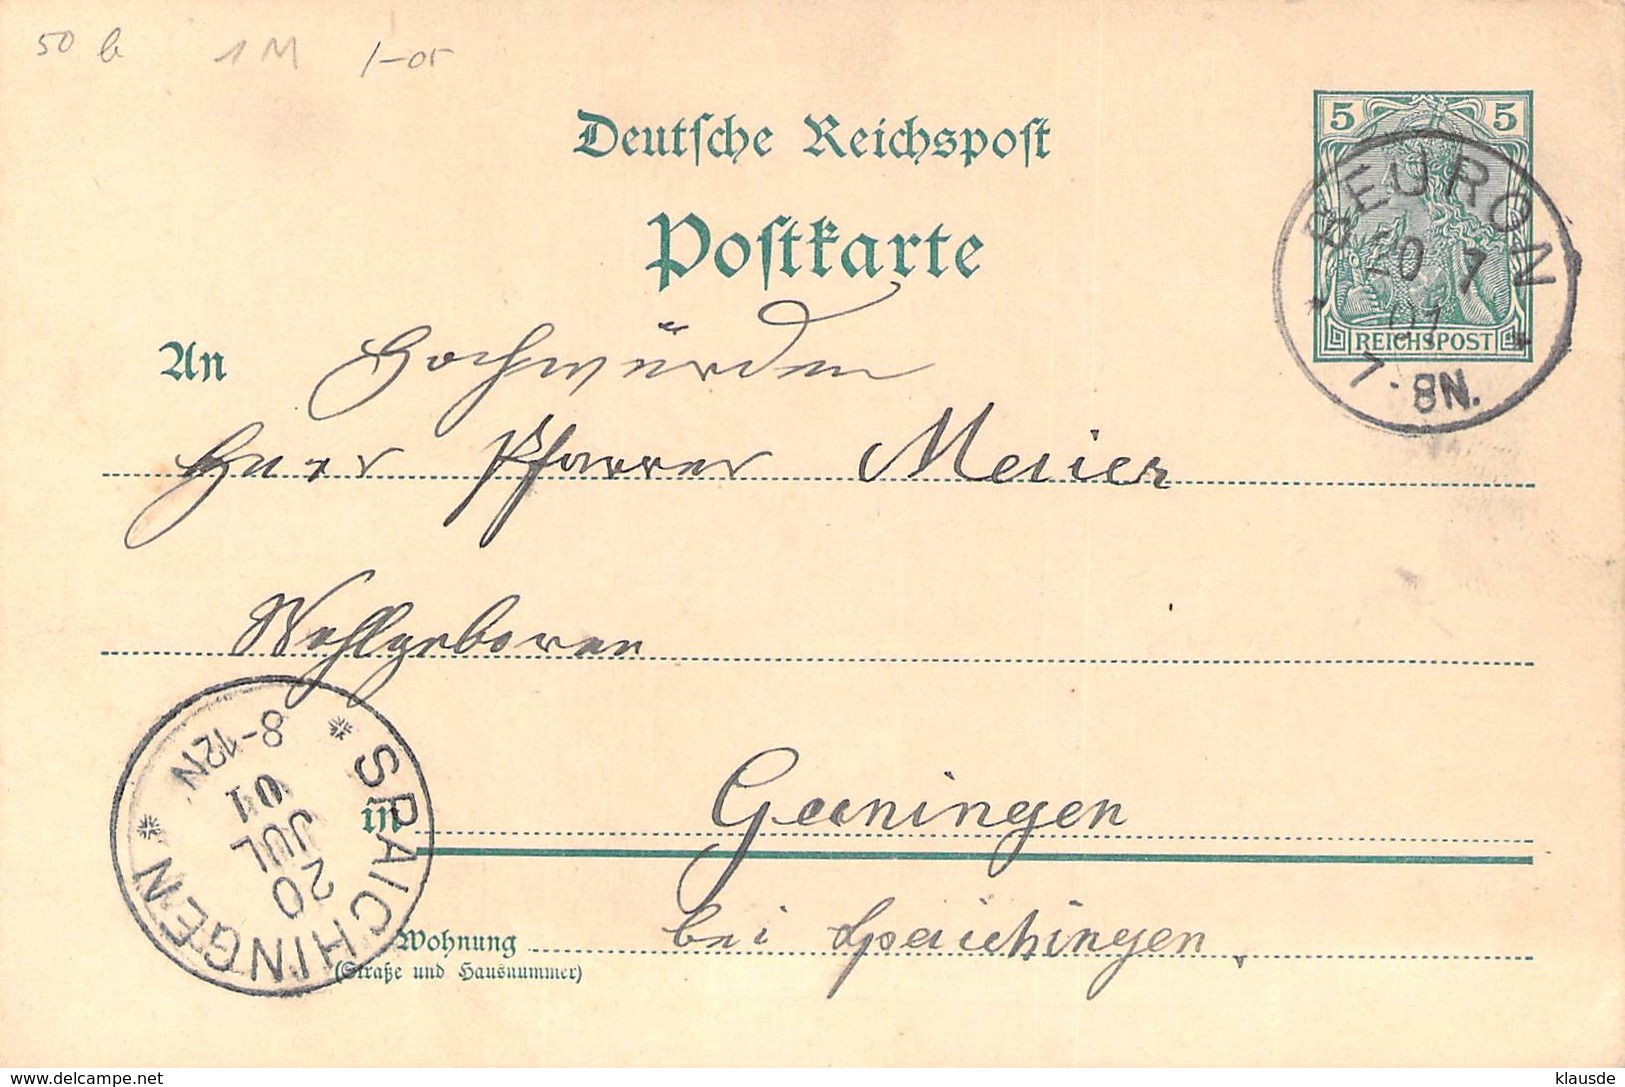 50 b 1 M 1-05
Deutsche Reichspost
Postkarte
5 5
REICHSPOST
BEURON
20 7
01
7-8N.
An Hochwürden
Herr Pfarrer
Wohlgeboren
SPAICHINGEN
20
JUL
01
8-12N
in
bei Spaichingen
Wohnung
(Straße und Hausnummer)
klausde
delcampe.net